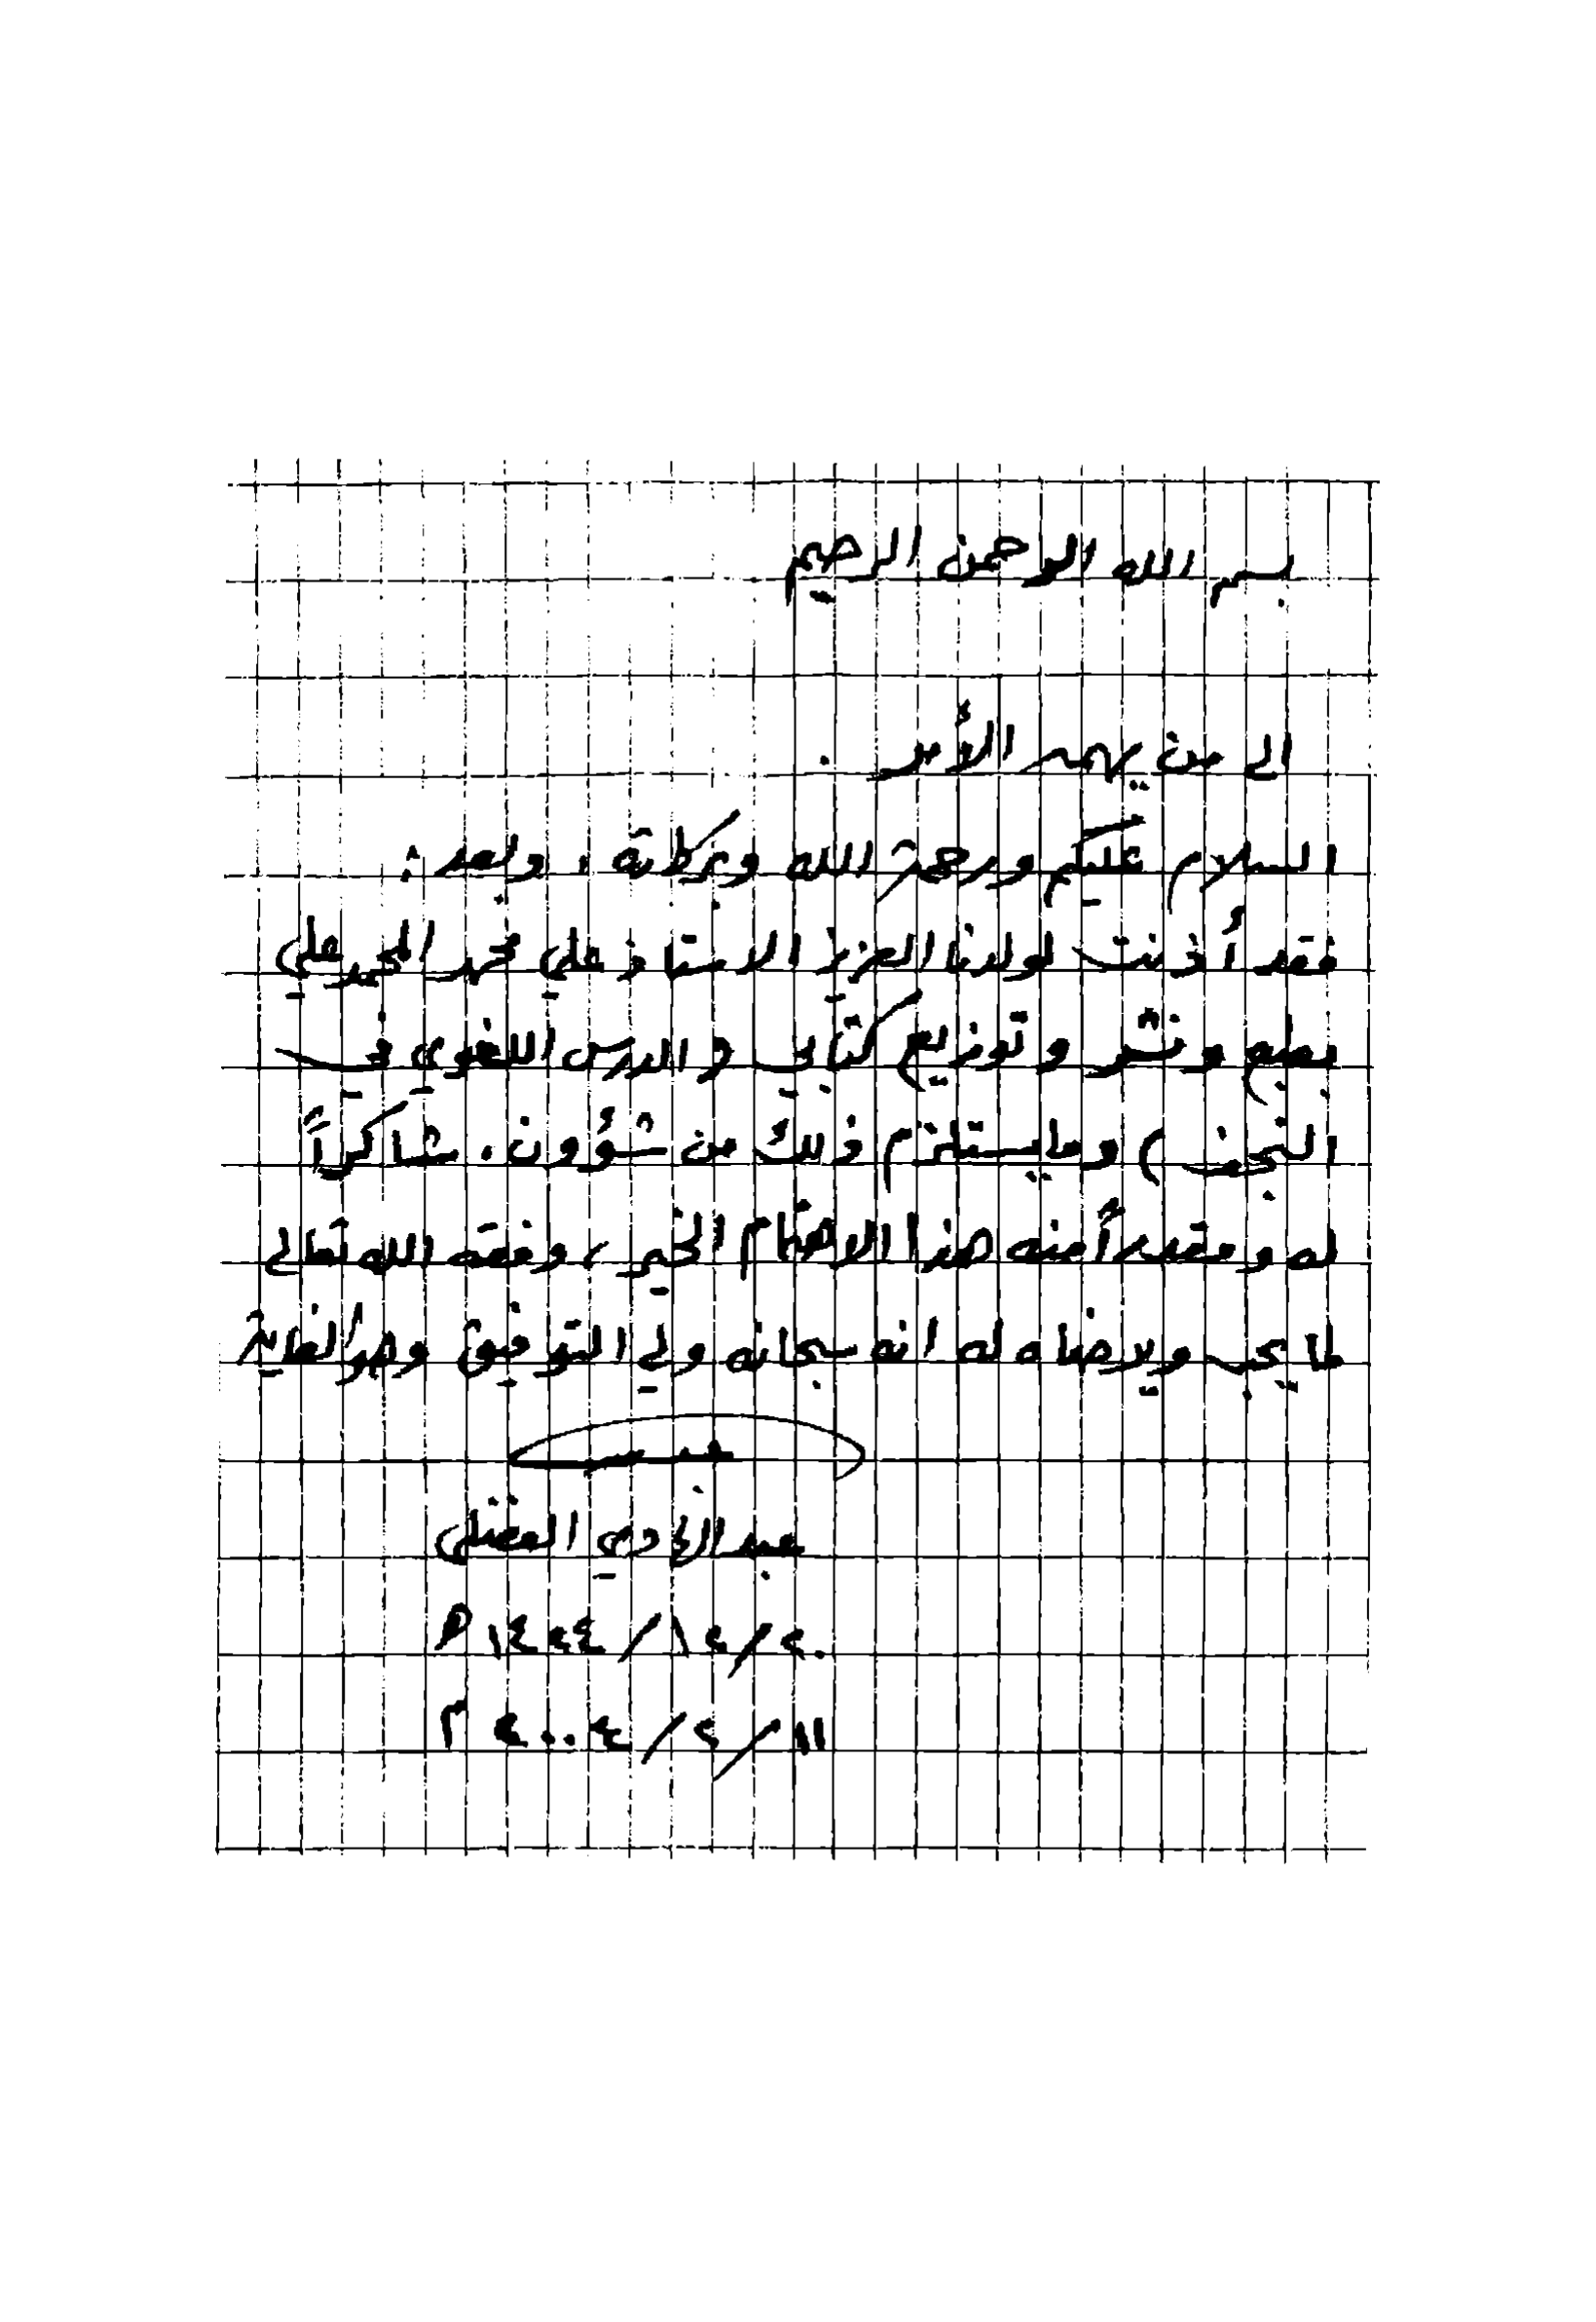 بسم الله الرحمن الرحيم
الى من يهمه الأمر .
السلام عليكم ورحمة الله وبركاته ، وبعد :
فقد أذنت لولدنا العزيز الاستاذ علي محمد المحمد علي
بطبع ونشر وتوزيع كتابي ( الدرس اللغوي في
النجف ) وما يستلزم ذلك من شؤون . شاكراً
له ومقدراً منه هذا الاهتمام الخير ، وفقه الله تعالى
لما يحب ويرضاه له انه سبحانه ولي التوفيق وهو الغاية
عبد الهادي الفضلي
٢٠/١٢/١٤٢٤ هـ
١١/٢/٢٠٠٤ م